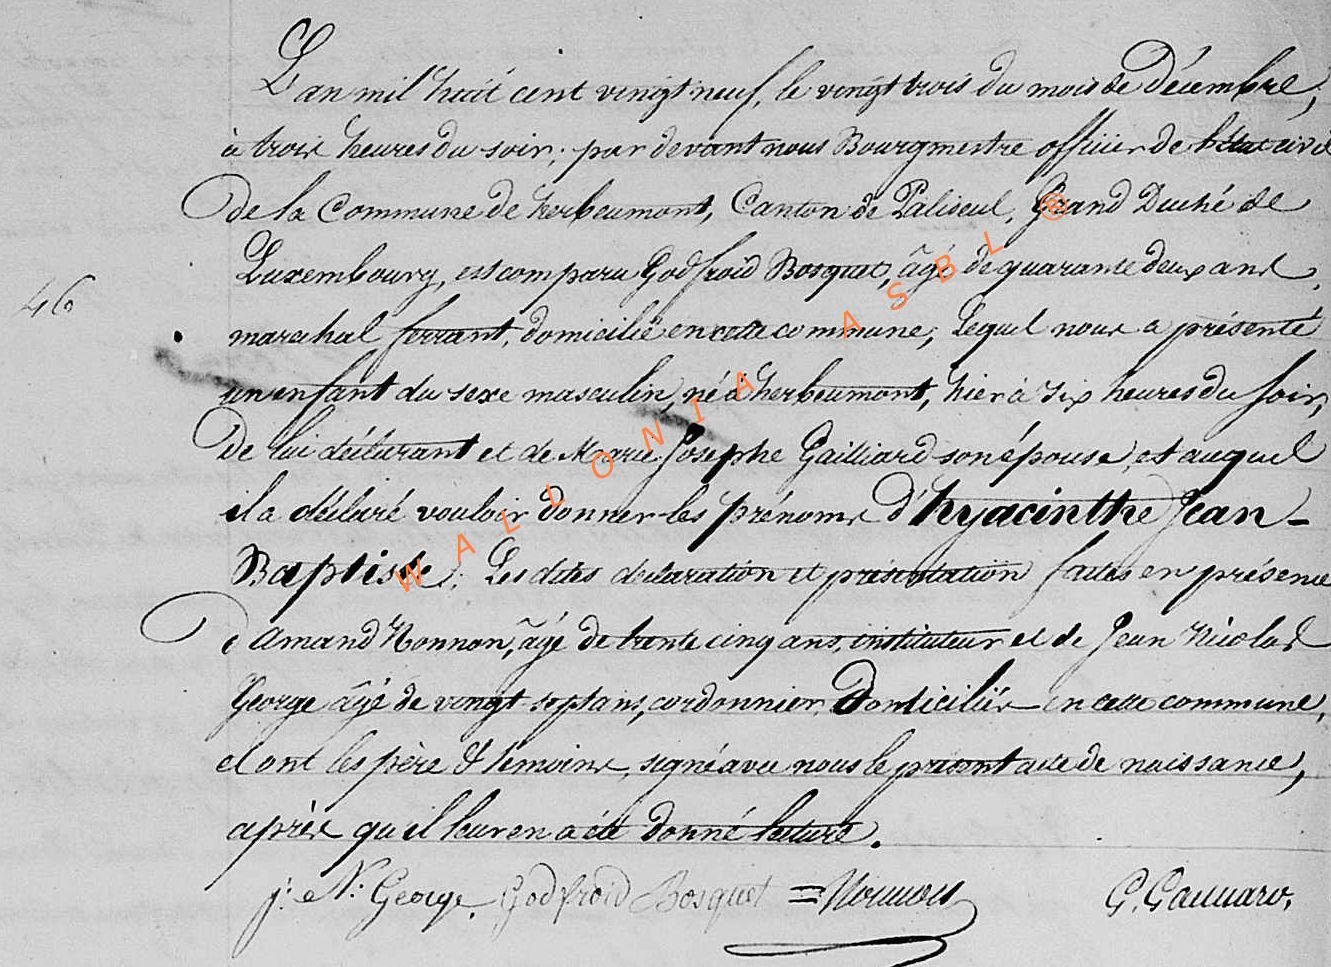 L'an mil huit cent vingt neuf, le vingt trois du mois de Décembre,
à trois heures du soir; par devant nous Bourgmestre officier de l'état civil
De la Commune de herbeumont, Canton de Paliseul, Grand Duché de
Luxembourg, est comparu Godfroid Bosquet, âgé de quarante deux ans,
46
marechal ferrant, domicilié en cette commune, Lequel nous a présenté
un enfant du sexe masculin, né à herbeumont, hier à six heures du soir,
De lui déclarant et de Marie Josephe Gailliard son épouse, et auquel
il a déclaré vouloir donner les prénoms d'hyacinthe Jean-
Baptiste. Les dites declaration et présentation faites en présence
d'Amand Nonnon, âgé de trente cinq ans, instituteur et de Jean Nicolas
George âgé de vingt-sept ans, cordonnier, Domiciliés en cette commune,
et ont les père & témoins, signé avec nous le présent acte de naissance,
après qu'il leur en a été donné lecture.
j. N. George. Godfroid Bosquet = Nonnon G. Gannaro,
WALLONIA ASBL ®